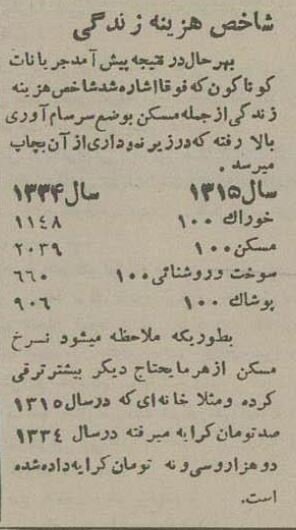 شاخص هزینه زندگی
بهر حال در نتیجه پیش آمد جریانات
کوناکون که فوقا اشاره شد شاخص هزینه
زندگی از جمله مسکن بوضع سرسام آوری
بالا رفته که در زیر نموداری از آن بچاپ
میرسد.
سال ۱۳۱۵ سال ۱۳۳۴
خوراك ۱۰۰ ۱۱۴۸
مسکن ۱۰۰ ۲۰۳۹
سوخت وروشنائی ۱۰۰ ۶۶۰
پوشاك ۱۰۰ ۹۰۶
بطوریکه ملاحظه میشود نسرخ
مسکن از هر مایحتاج دیگر بیشتر ترقی
کرده و مثلا خانه ای که در سال ۱۳۱۵
صد تومان کرایه میرفته در سال ۱۳۳۴
دو هزار و سی و نه تومان کرایه داده شده
است.